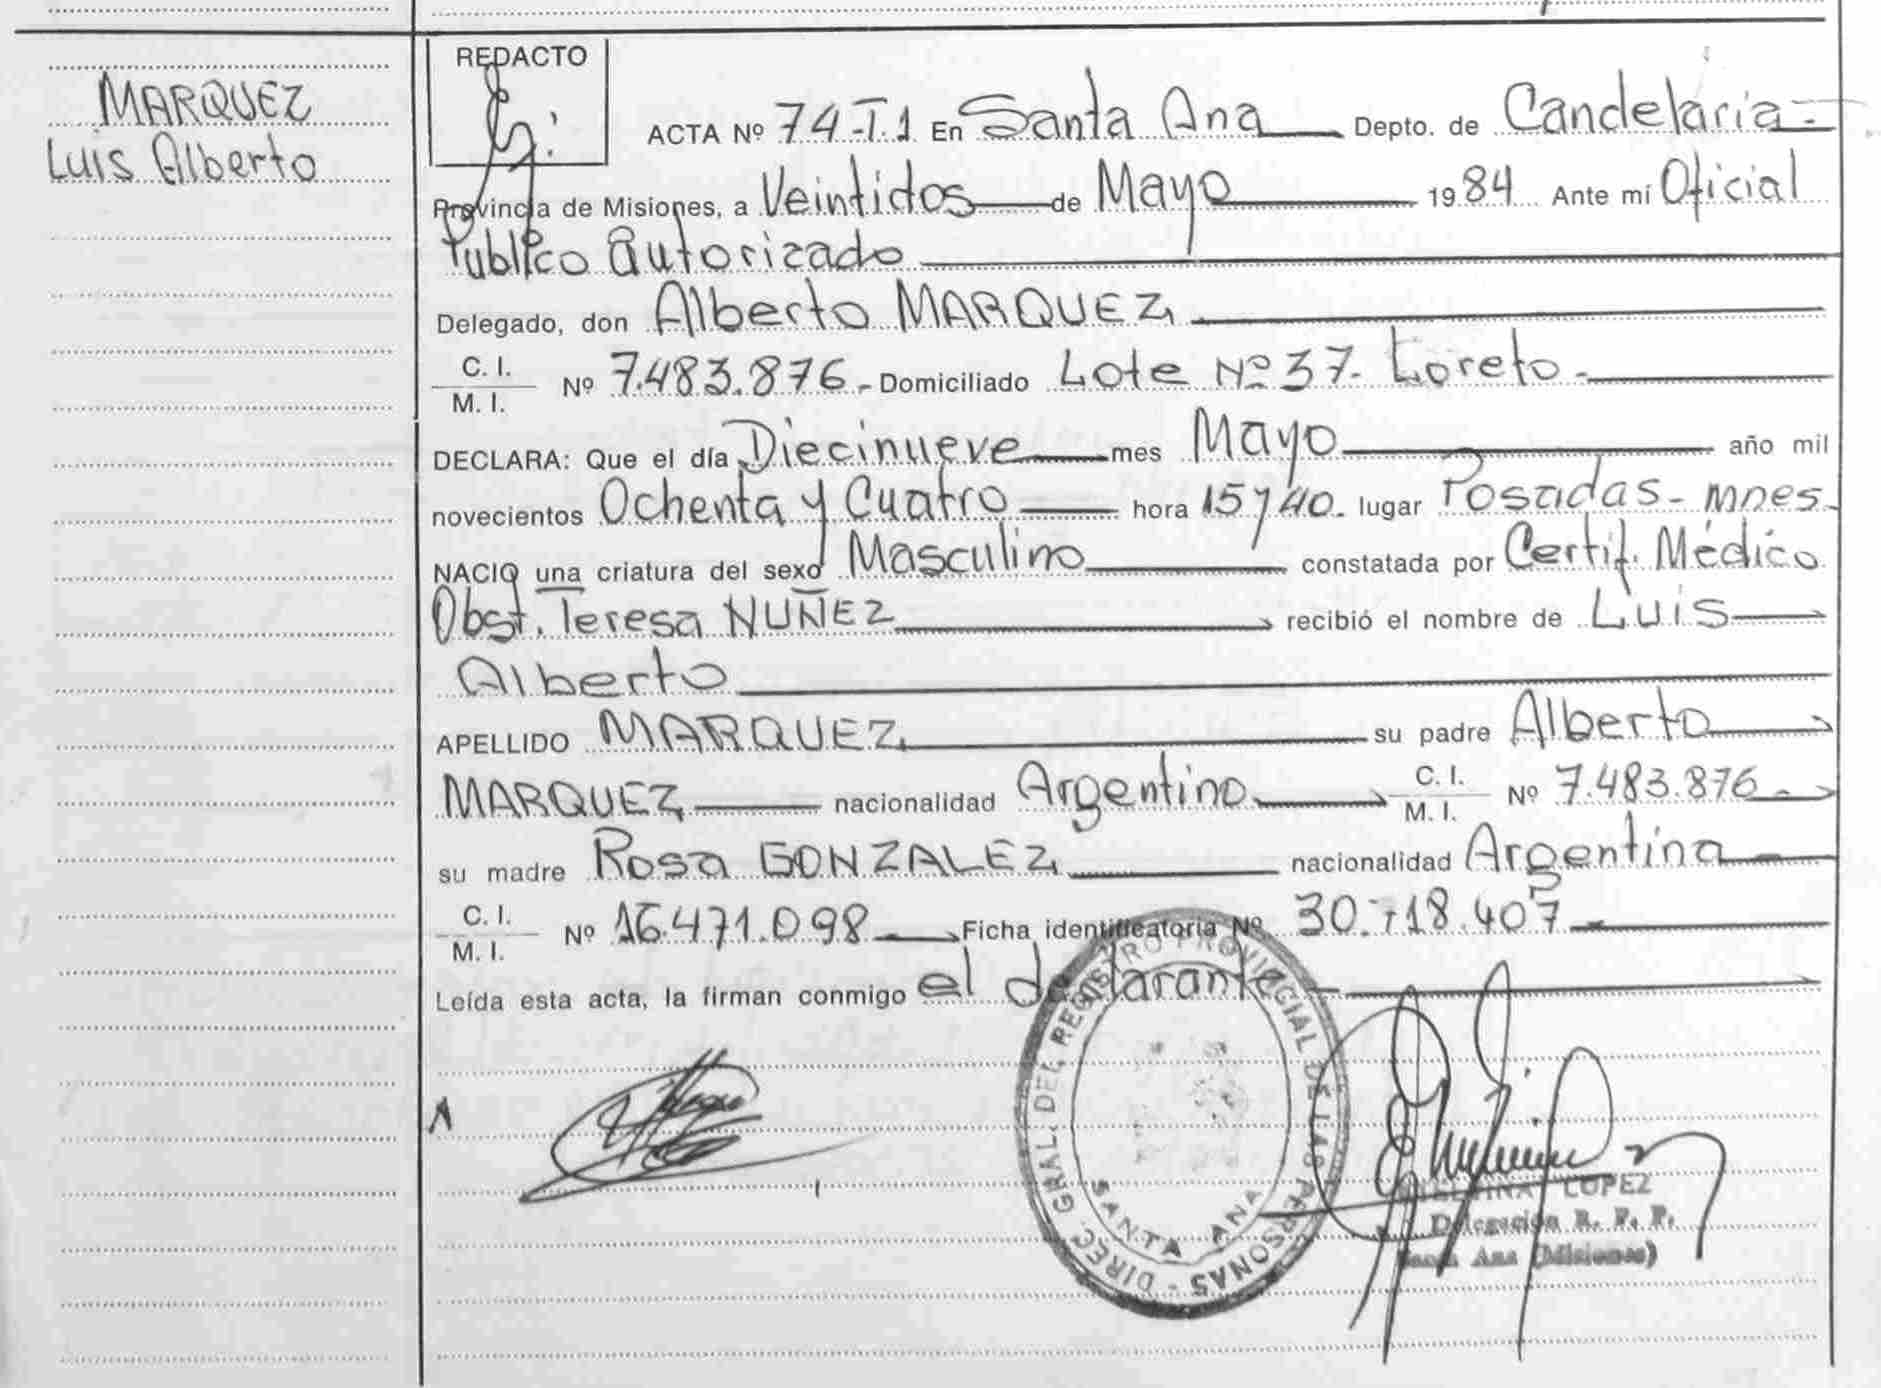 MARQUEZ
Luis Alberto
REDACTO
ACTA Nº 74-T.1 En Santa Ana Depto. de Candelaria
Provincia de Misiones, a Veintidos de Mayo 1984 Ante mi Oficial
Publico Autorizado
Delegado, don Alberto MARQUEZ
C. I.
M. I. Nº 7.483.876.- Domiciliado Lote Nº 37. Loreto.-
DECLARA: Que el día Diecinueve mes Mayo año mil
novecientos Ochenta y Cuatro hora 15 y 40. lugar Posadas - mnes.
NACIO una criatura del sexo Masculino constatada por Certif. Médico
Obst. Teresa NUÑEZ recibió el nombre de Luis
Alberto
APELLIDO MARQUEZ su padre Alberto
MARQUEZ nacionalidad Argentino C. I.
M. I. Nº 7.483.876
su madre Rosa GONZALEZ nacionalidad Argentina
C. I.
M. I. Nº 16.471.098 Ficha identificatoria Nº 30.718.407
Leída esta acta, la firman conmigo el declarante
DIREC. GRAL. DEL REGISTRO PROVINCIAL DE LAS PERSONAS -
SANTA ANA
LOPEZ
Delegación R. P. P.
Santa Ana (Misiones)